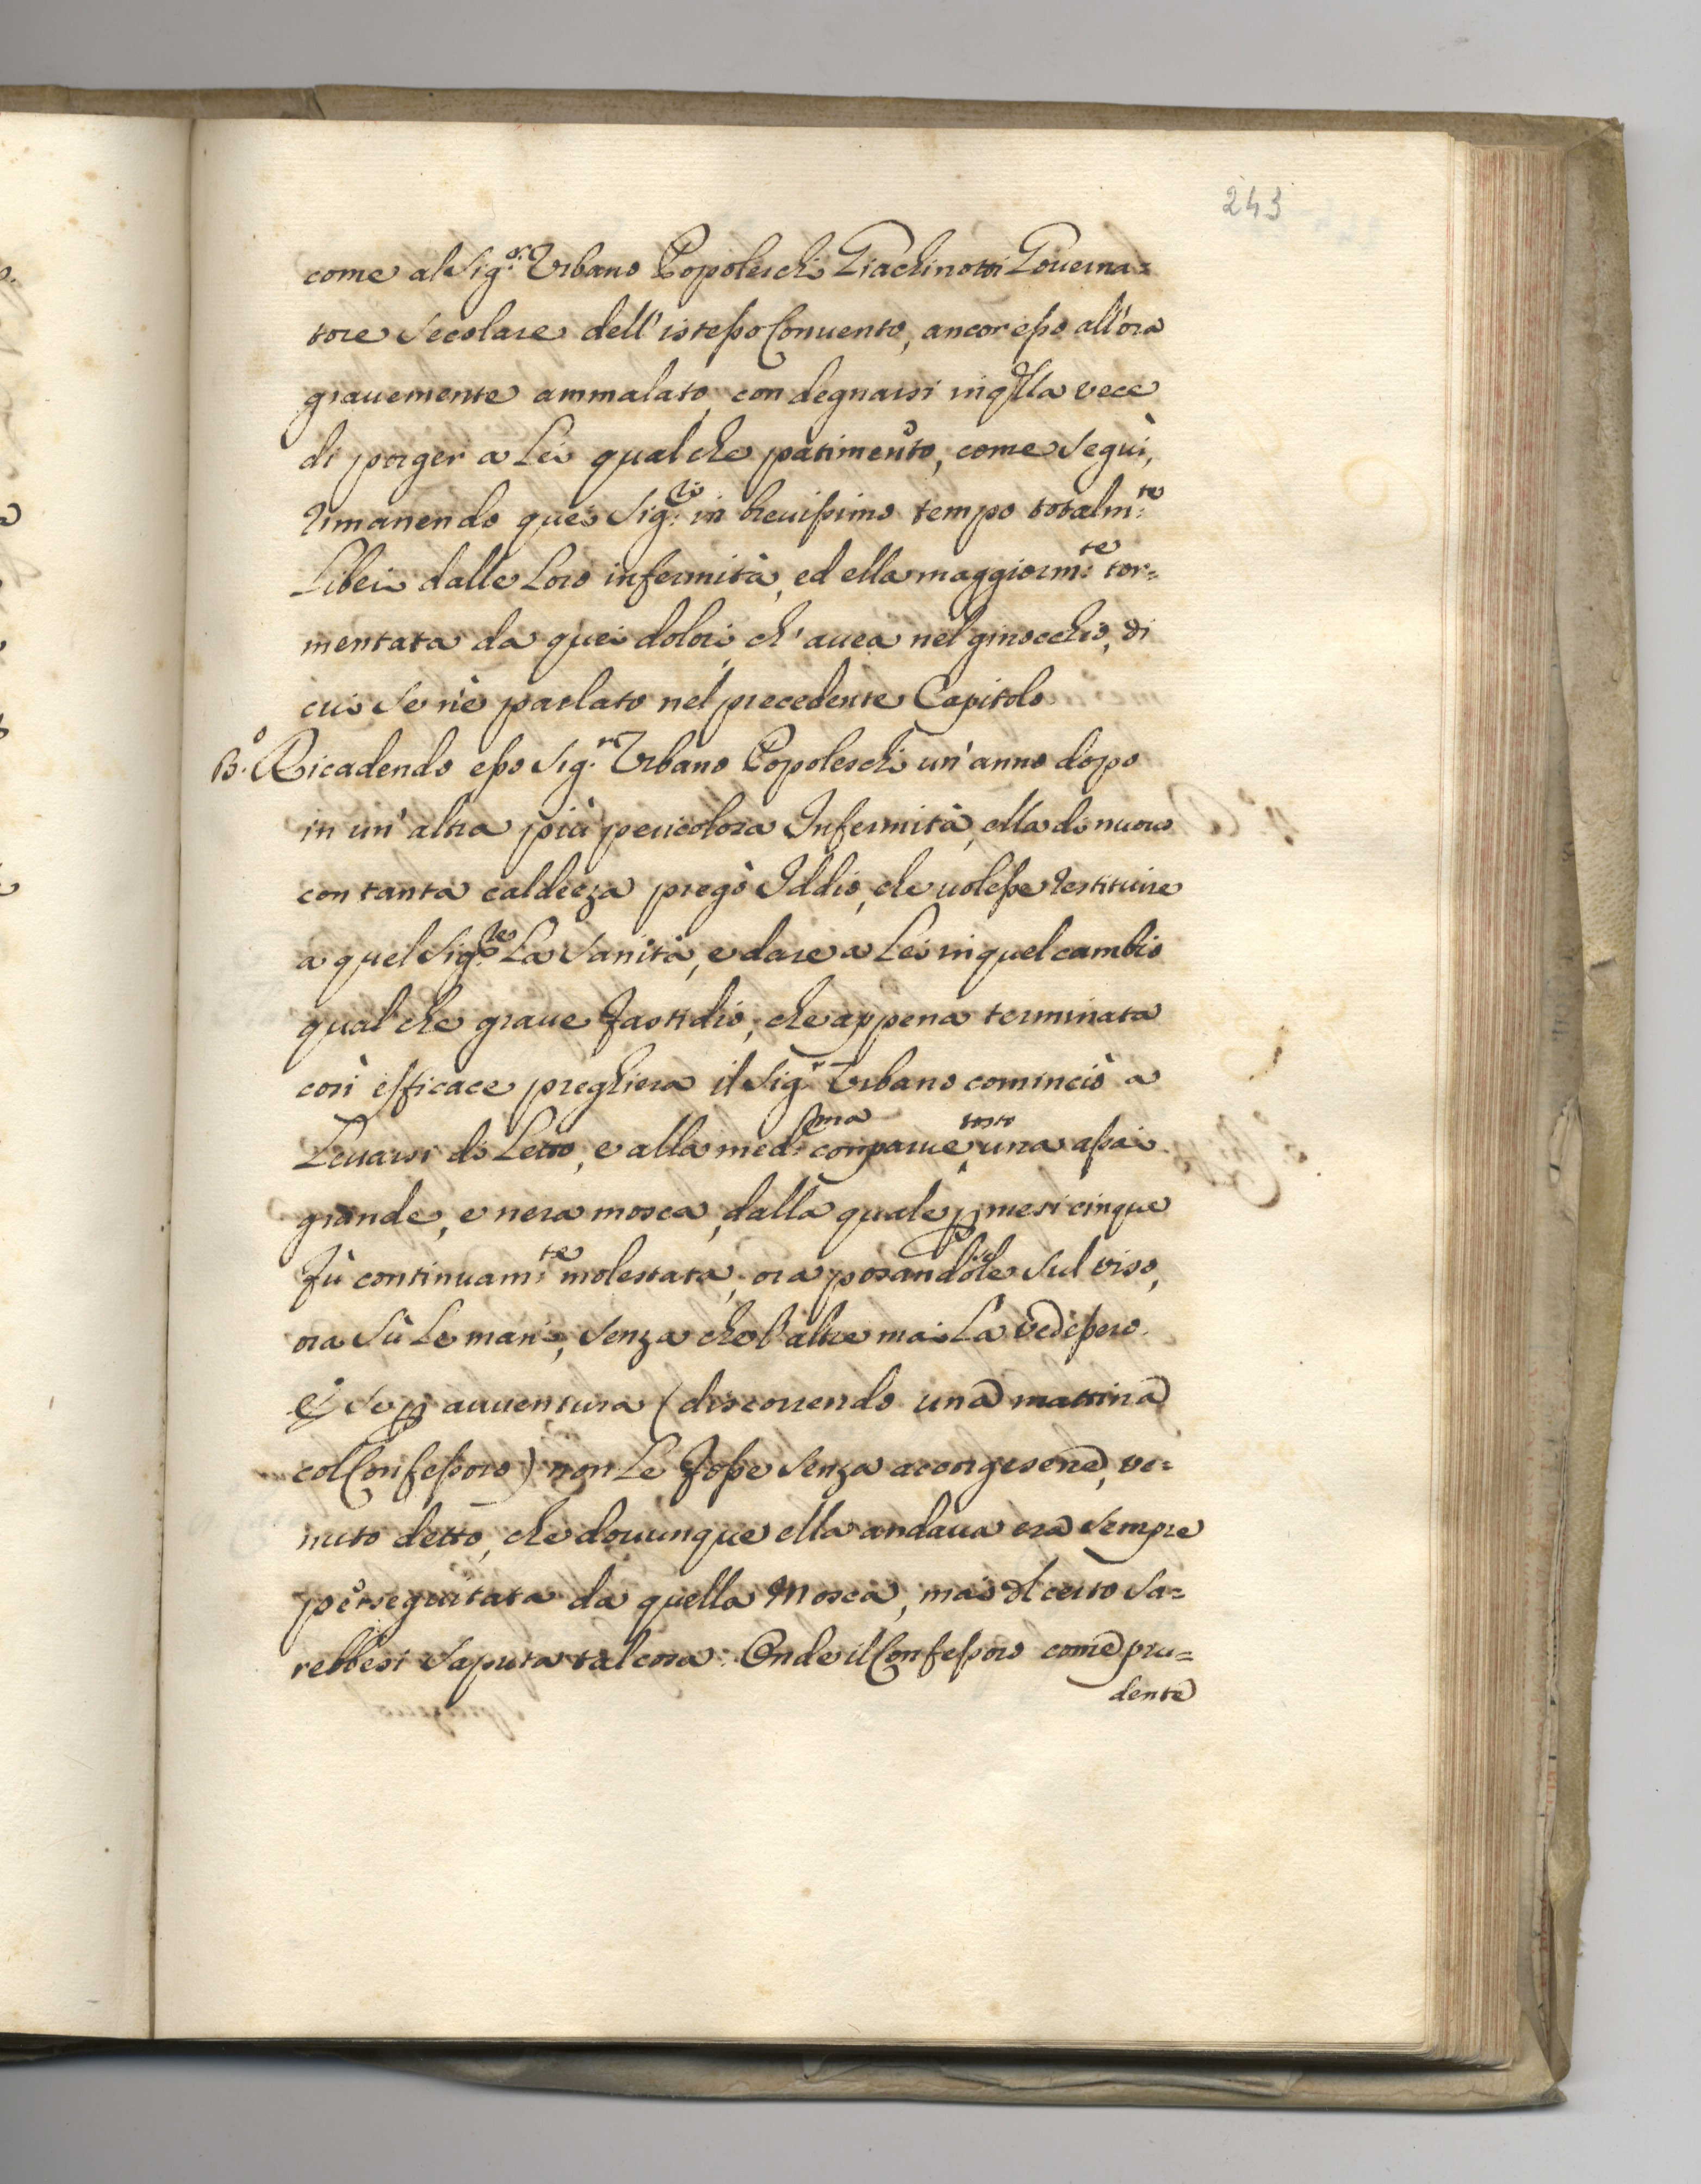 243
come al Sig.r Urbano Popoleschi Giachinotti Governa=
tore Secolare dell'istesso Convento, ancor esso all'ora
gravemente ammalato, con degnarsi in qlla vece
di porger a Lei qualche patimento, come Seguì,
rimanendo quei Sig.ri in brevissimo tempo totalm.te
Liberi dalle Loro infermità, ed ella maggiorm.te tor=
mentata da quei dolori, ch'avea nel ginocchio, di
cui Se n'è parlato nel precedente Capitolo
B.o Ricadendo esso Sig.r Urbano Popoleschi un'anno dopo
in un'altra più pericolosa Infermità, ella di nuovo
con tanta caldezza pregò Iddio, che volesse restituire
a quel Sig.re La Sanità, e dare a Lei in quel cambio
qual che grave fastidio, che appena terminata
così efficace preghiera il Sig.r Urbano cominciò a
Levarsi di Letto, e alla med.sma comparve tosto una assai
grande, e nera mosca, dalla quale p mesi cinque
fù continuam.te molestata, ora posandosele Sul viso,
ora Sù Le mani, Senza che l'altre mai La vedessero.
e Se p avventura (discorrendo una mattina
col Confessoro) non Le fosse Senza accorgesene, ve=
nuto detto, che dovunque ella andava era Sempre
perseguitata da quella Mosca, mai di certo Sa=
rebbesi Saputa tal cosa: Onde il Confessoro come pru=
dente